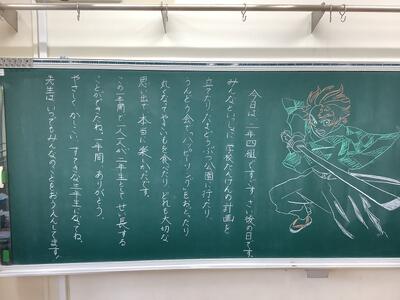 今日は、二年四組ですごすさい後の日です。
みんなといっしょに学校たんけんの計画を
立てたり、人まどうぶつ公園に行ったり、
うんどう会で、ハッピーリングをおどったり
丸なすややさいもを食べたり、どれも大切な
思い出で、本当に楽しかったです。
この一年間で一人一人が二年生としてせい長する
ことができたね。一年間、ありがとう。
やさしく、かしこい、すてきな三年生になってね。
先生は、いつでもみんなのことをおうえんしてます!